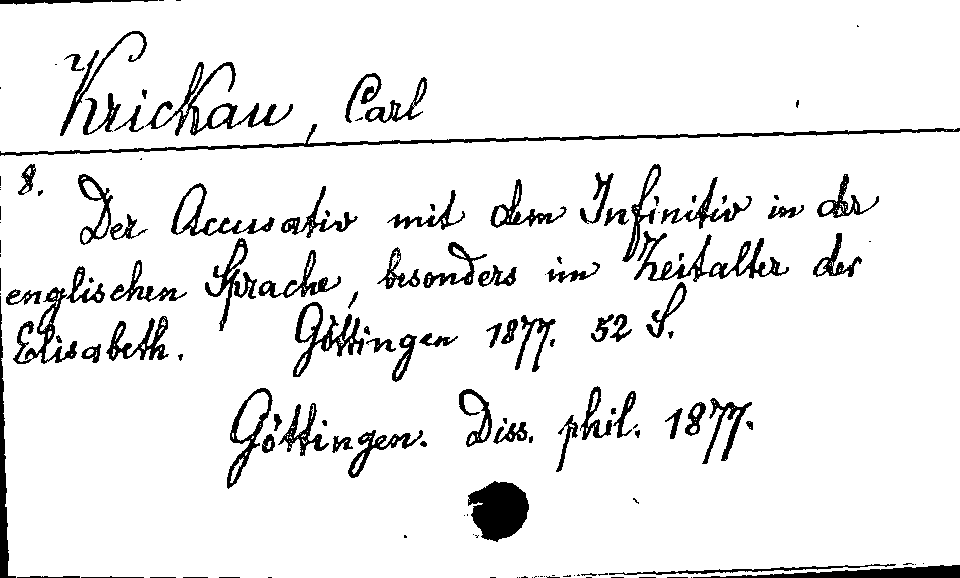 Krickau, Carl
8.
Der Accusativ mit dem Infinitiv in der
englischen Sprache, besonders im Zeitalter der
Elisabeth. Göttingen 1877. 52 S.
Göttingen. Diss. phil. 1877.